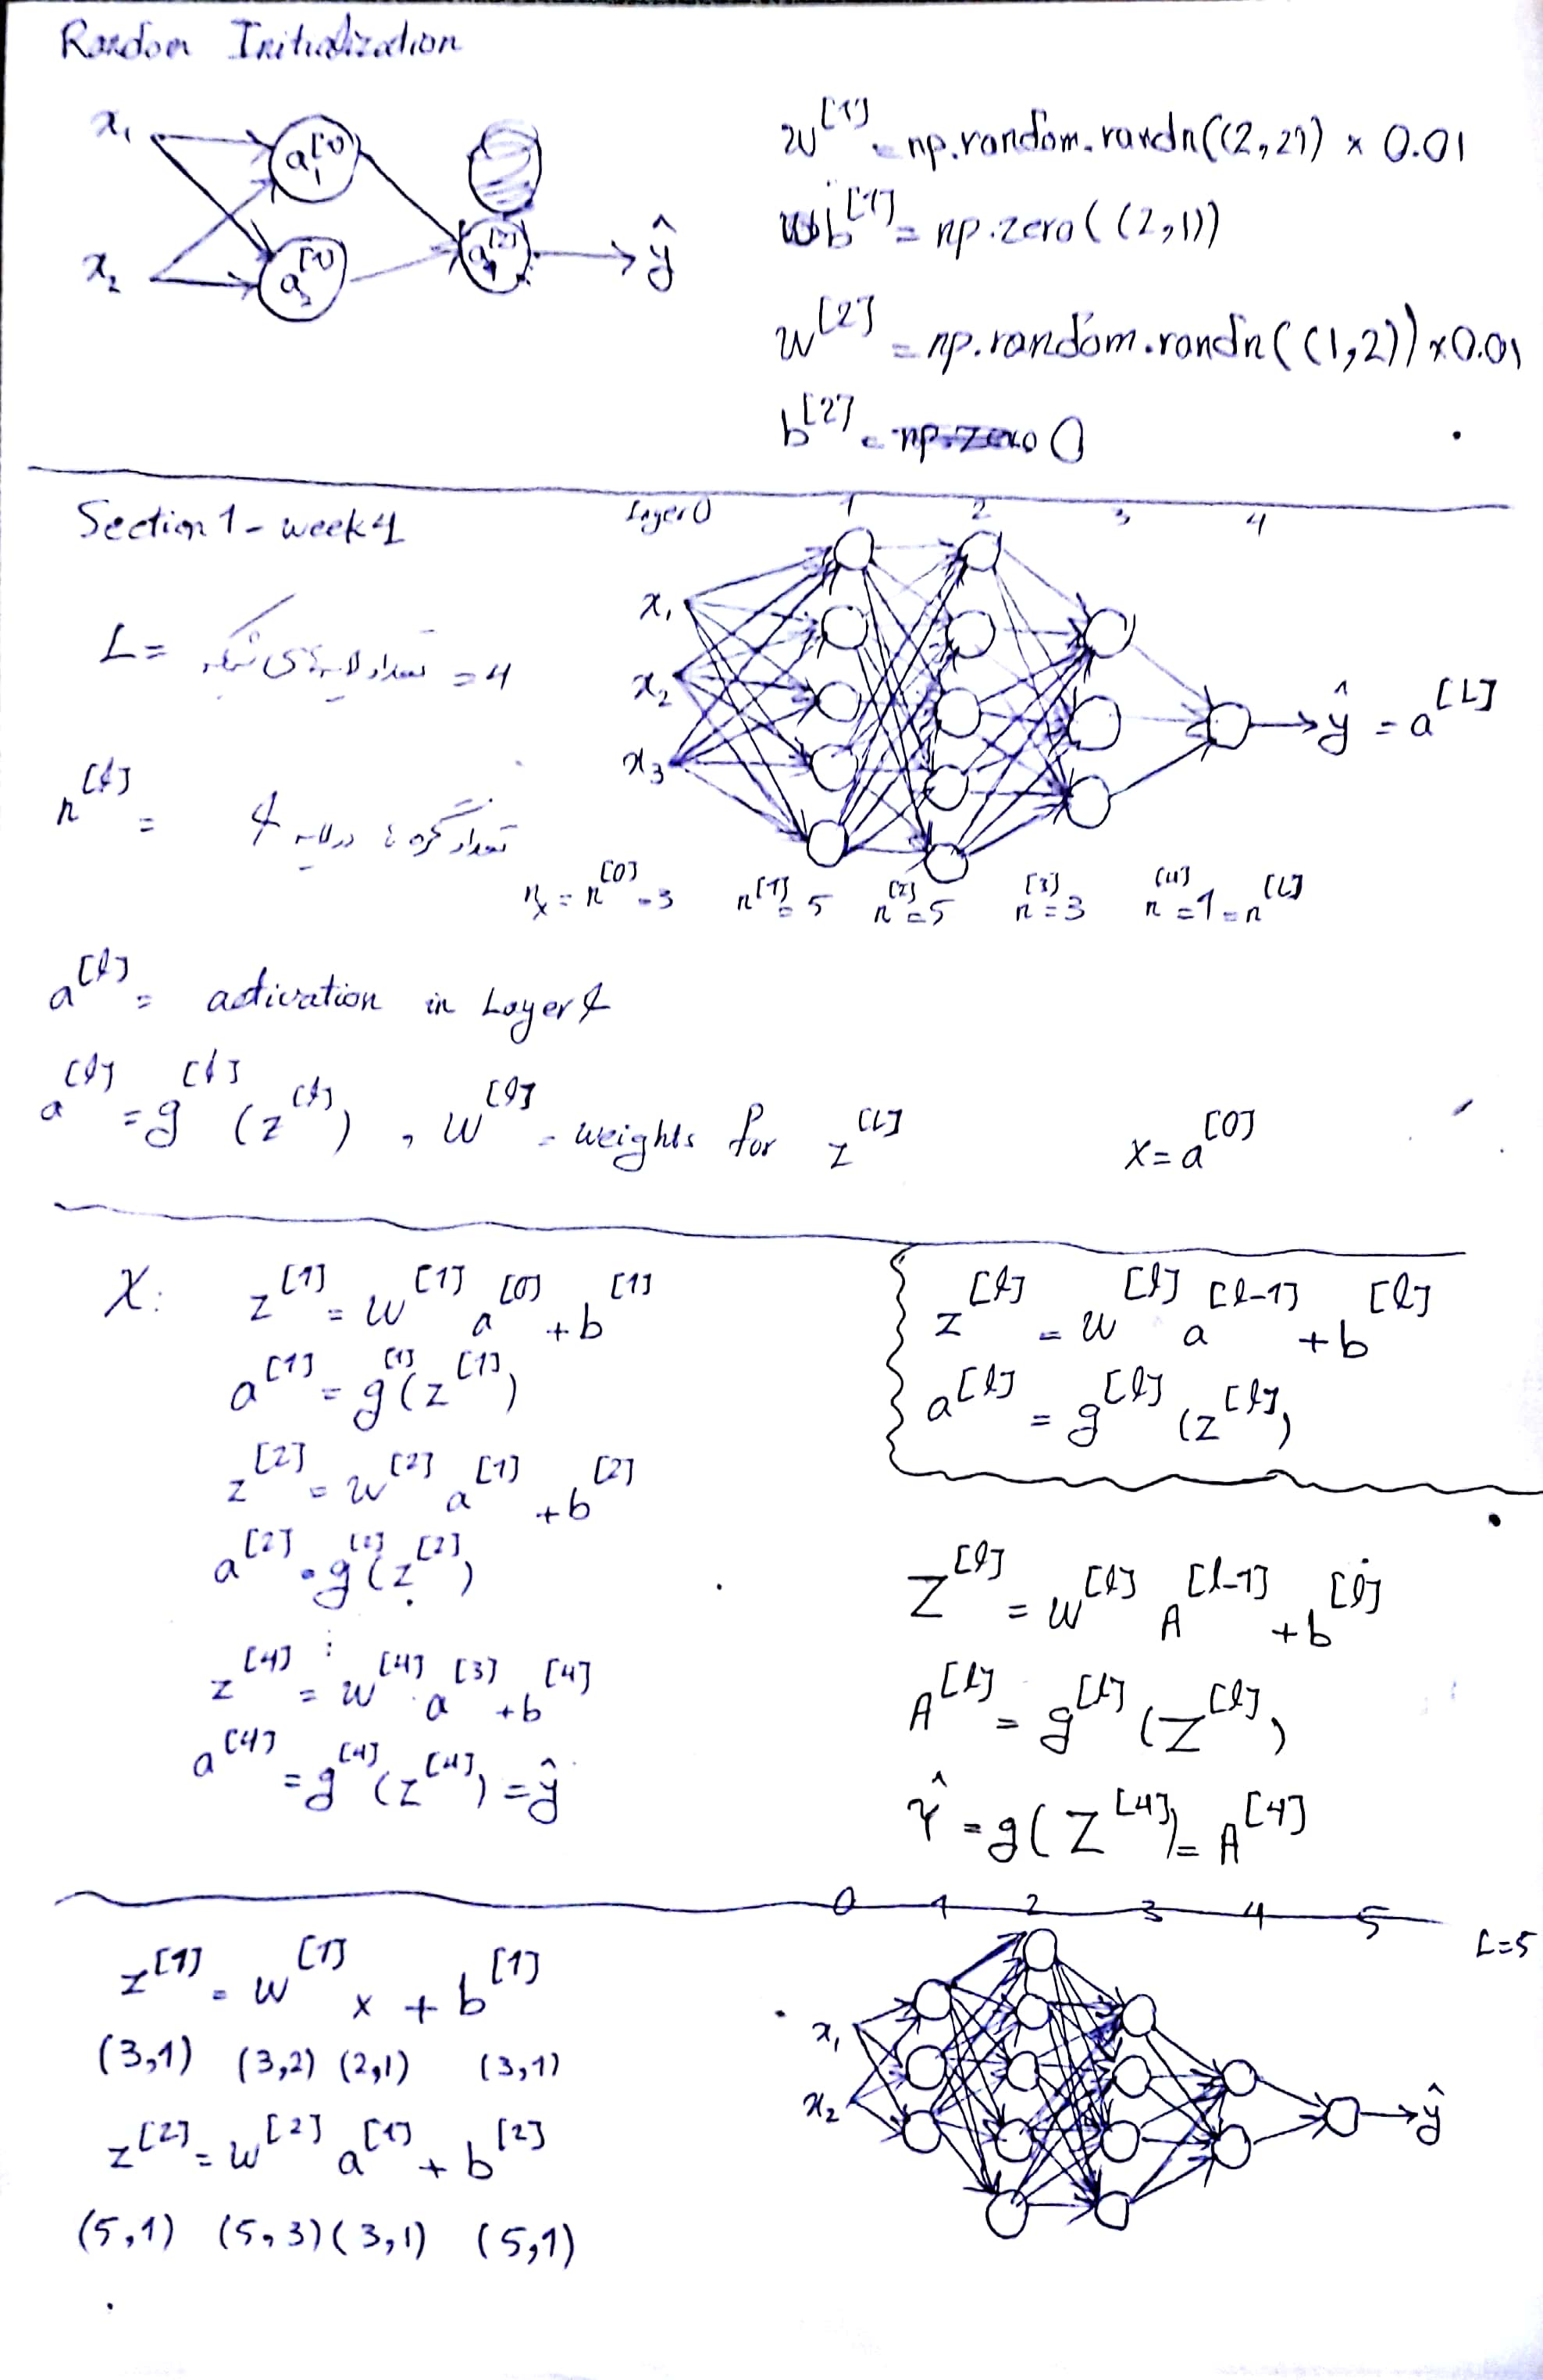 Random Initialization
x₁ a₁^[1]
x₂ a₂^[1] a₁^[2] ŷ
w^[1] = np.random.randn((2,2)) × 0.01
b^[1] = np.zero((2,1))
w^[2] = np.random.randn((1,2)) × 0.01
b^[2] = 0
Section 1 - week 4
Layer 0 1 2 3 4
L = تعداد لایه‌های شبکه = 4
x₁
x₂
x₃
ŷ = a^[L]
n^[l] = تعداد گره ها در لایه l
n_x = n^[0] = 3 n^[1] = 5 n^[2] = 5 n^[3] = 3 n^[4] = 1 = n^[L]
a^[l] = activation in Layer l
a^[l] = g^[l](z^[l]) , w^[l] = weights for z^[l] x = a^[0]
X: z^[1] = w^[1] a^[0] + b^[1]
a^[1] = g^[1](z^[1])
z^[2] = w^[2] a^[1] + b^[2]
a^[2] = g^[2](z^[2])
⋮
z^[4] = w^[4] a^[3] + b^[4]
a^[4] = g^[4](z^[4]) = ŷ
z^[l] = w^[l] a^[l-1] + b^[l]
a^[l] = g^[l](z^[l])
Z^[l] = w^[l] A^[l-1] + b^[l]
A^[l] = g^[l](Z^[l])
Ŷ = g(Z^[4]) = A^[4]
0 1 2 3 4 5
L=5
z^[1] = w^[1] x + b^[1]
(3,1) (3,2) (2,1) (3,1)
z^[2] = w^[2] a^[1] + b^[2]
(5,1) (5,3) (3,1) (5,1)
x₁
x₂
ŷ